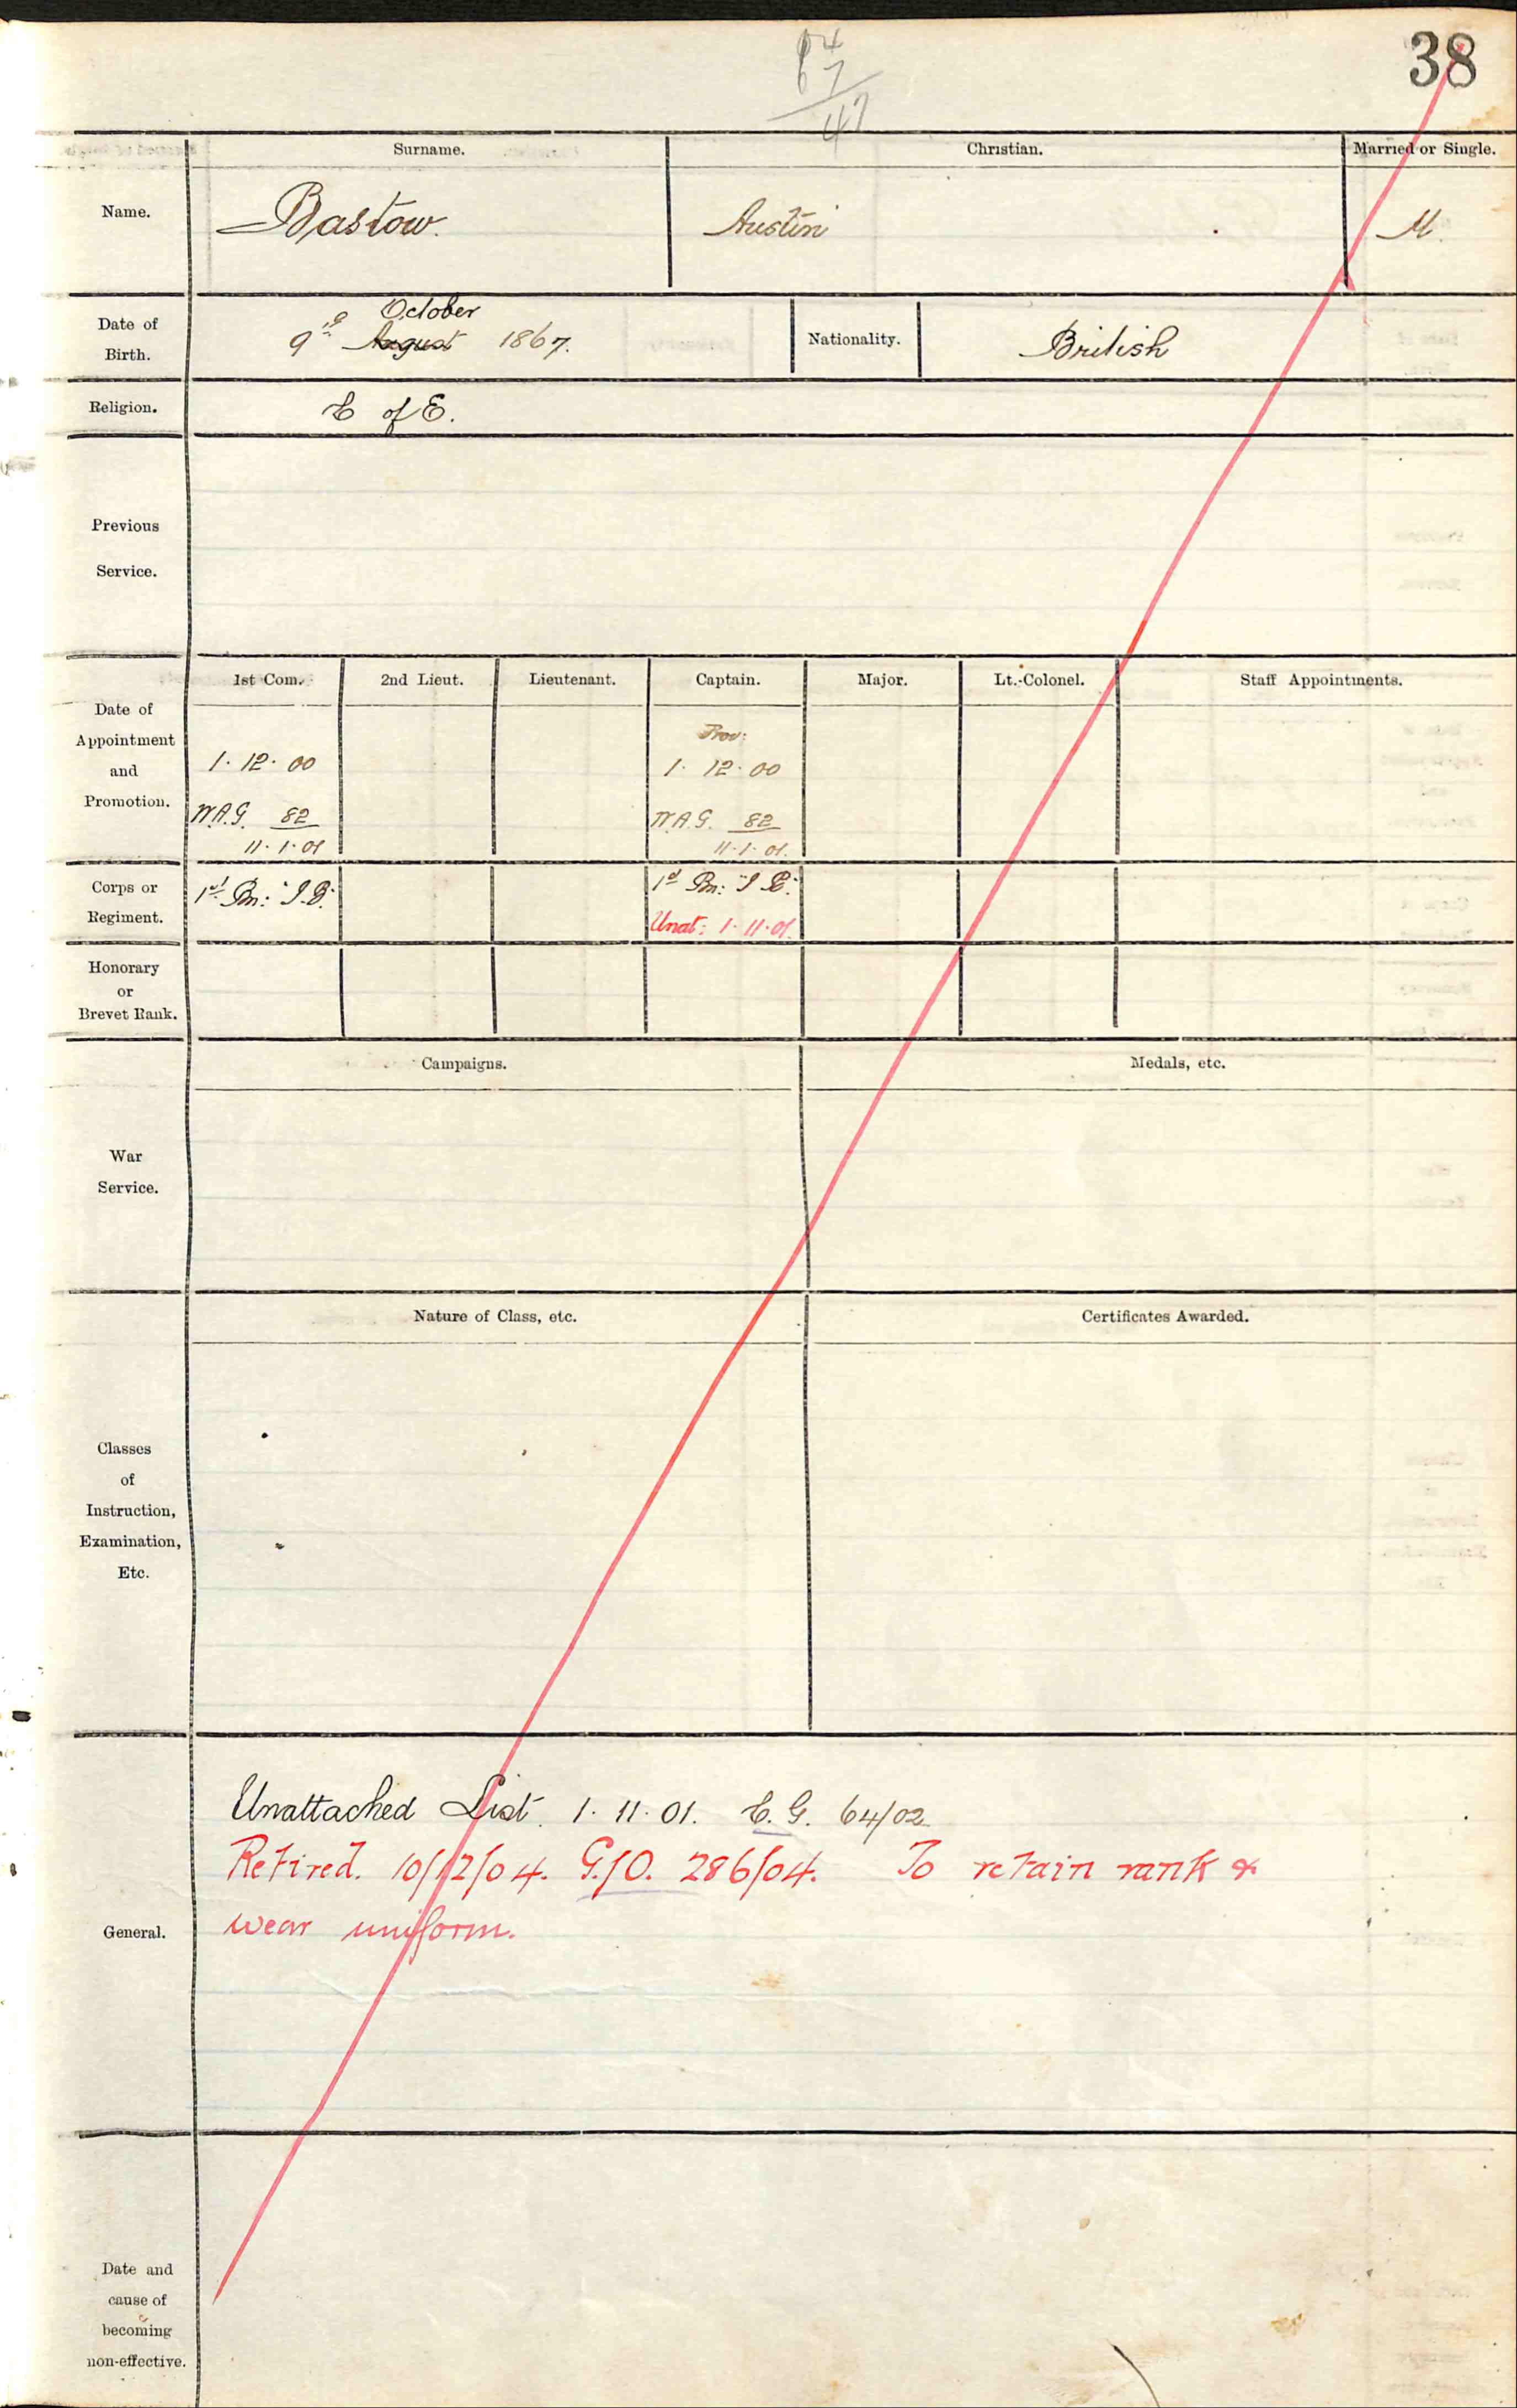 38
64
7
47
Surname. Christian. Married or Single.
Name. Bastow. Austin M.
October
Date of Birth. 9th August 1867. Nationality. British
Religion. C of E.
Previous
Service.
1st Com. 2nd Lieut. Lieutenant. Captain. Major. Lt.-Colonel. Staff Appointments.
Date of
Appointment
and
Promotion.
Prov:
1. 12. 00 1. 12. 00
W.A.G. 82 W.A.G. 82
11. 1. 01 11. 1. 01.
Corps or
Regiment.
1st Bn: I.B. 1st Bn: I.B.
Unat: 1. 11. 01.
Honorary
or
Brevet Rank.
Campaigns. Medals, etc.
War
Service.
Nature of Class, etc. Certificates Awarded.
Classes
of
Instruction,
Examination,
Etc.
General.
Unattached List. 1. 11. 01. C.G. 64/02
Retired. 10/12/04. G.O. 286/04. To retain rank &
wear uniform.
Date and
cause of
becoming
non-effective.